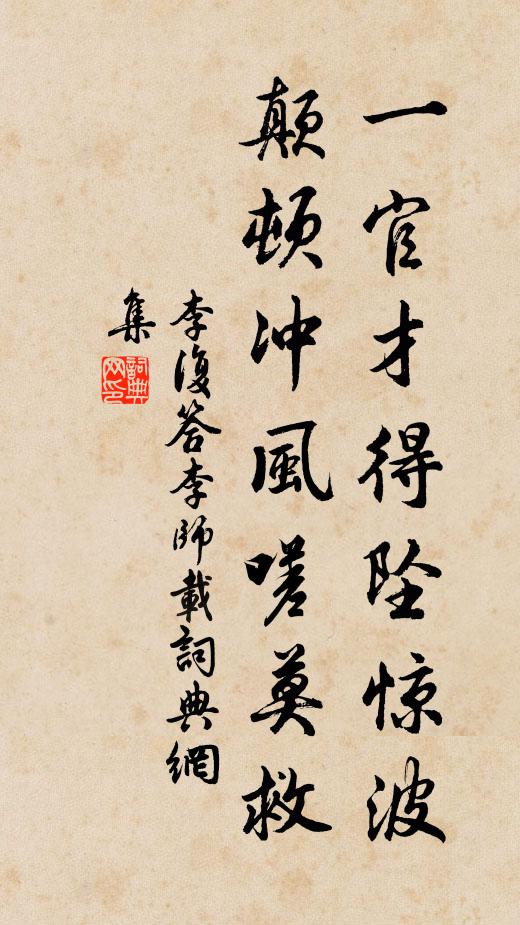 一官才得坠惊波
颠顿冲風嗟莫救
李復答李師載詞典網
集
詞典
网印